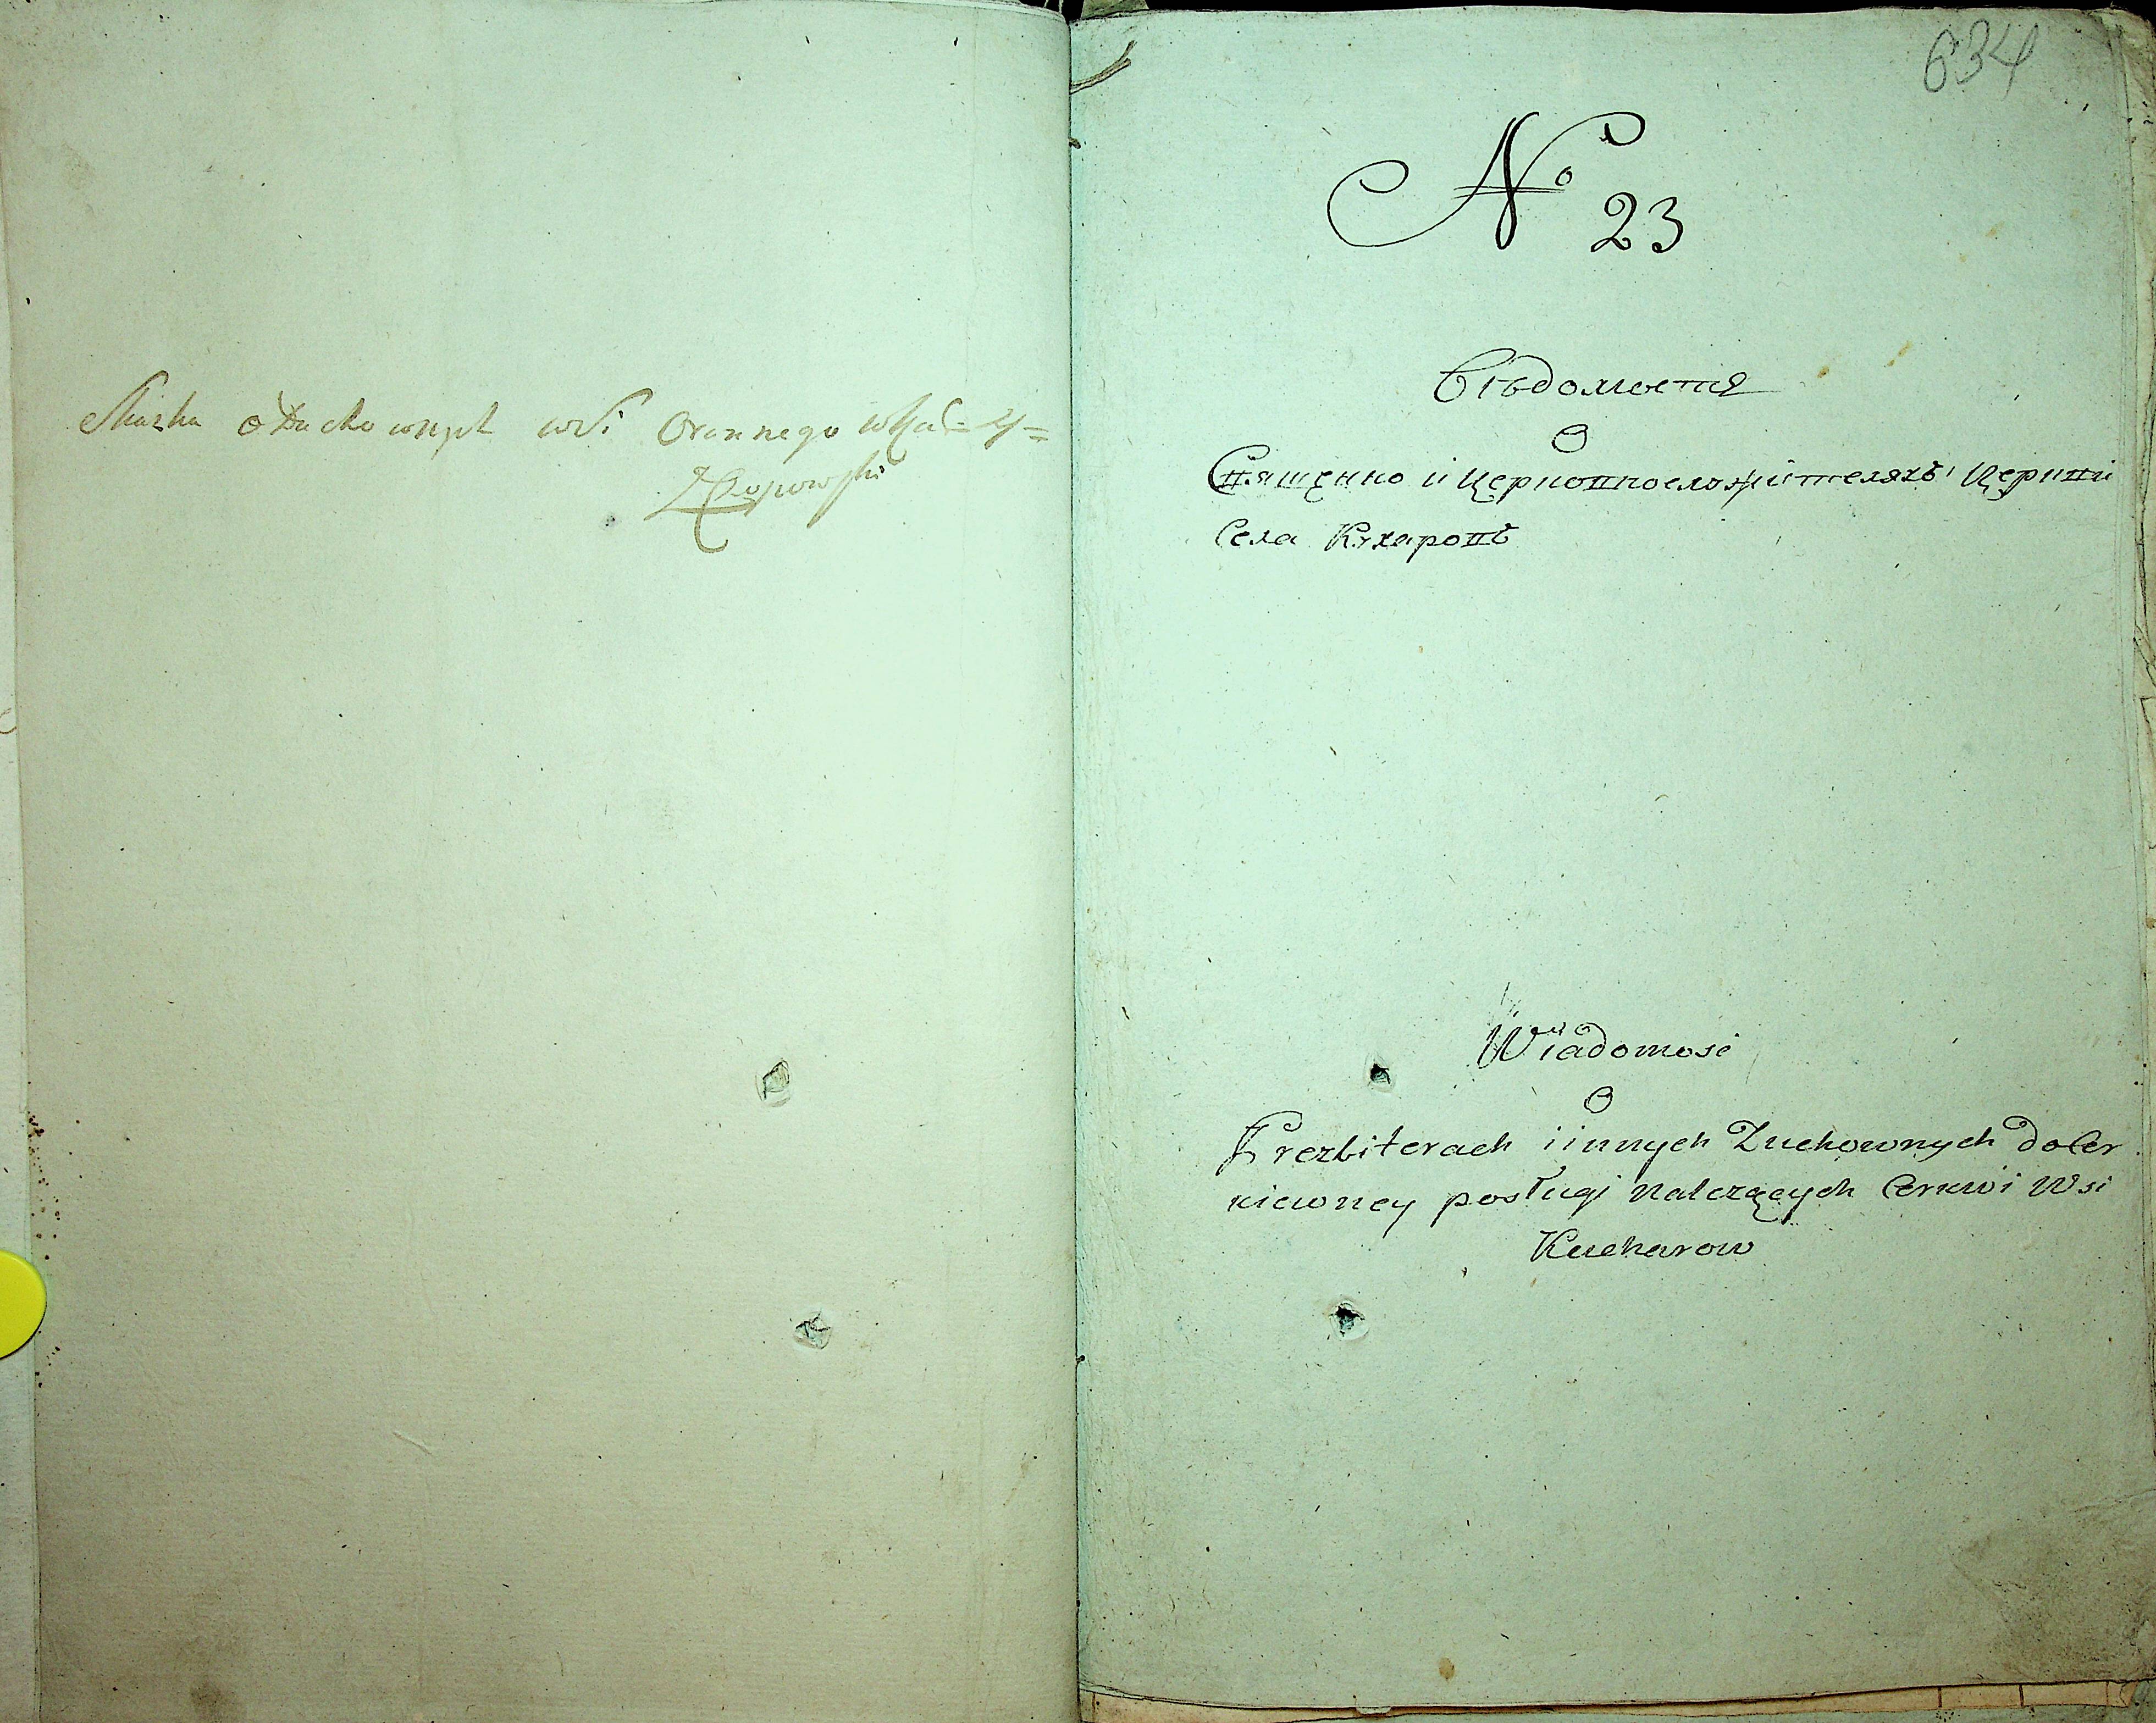 Skazka o Duchownych wsi Orannego
634
No 23
Вѣдомость
О
Священно и церковнослужителяхъ церкви
Села Кухаровъ
Wiadomosć
O
Prezbiterach i innych Duchownych do Cer
kiewney posługi należących Cerkwi Wsi
Kucharow